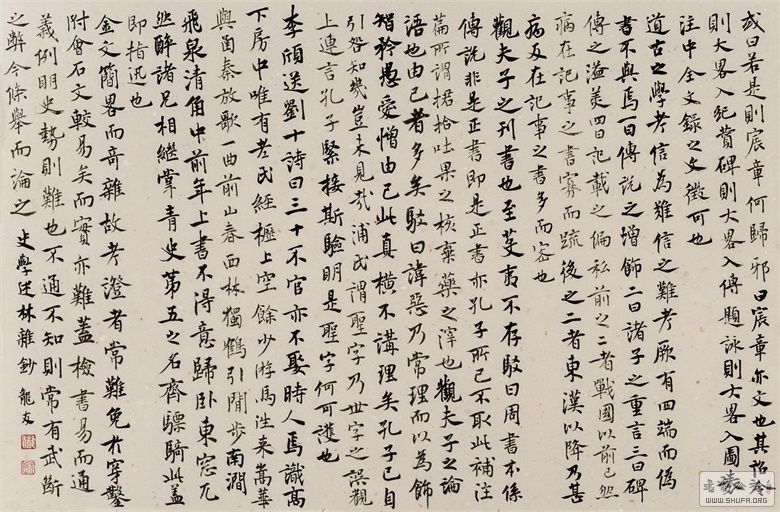 或曰若是則宸章何歸邪曰宸章亦文也其詔令
則大略入紀賛碑則大略入傳題詠則大略入圖
注中全文錄之文徵可也
道古之學考信為難信之難考厥有四端而偽
書不與焉一曰傳說之增飾二曰諸子之重言三曰碑
傳之溢美四曰記載之偏私前之二者戰國以前已然
病在記事之書寡而疏後之二者東漢以降乃甚
病反在記事之書多而容也
觀夫子之刊書也至芟夷不存駁曰周書本係
傳說非是正書即是正書亦孔子所已不取此補注
篇所謂捃拾吐果之核棄藥之滓也觀夫子之論
語也由己者多矣駁曰諱惡乃常理而以為飾
智矜愚愛憎由己此真橫不講理矣孔子已自
引咎知幾豈未見哉浦氏謂聖字乃世字之誤觀
上連言孔子緊接斯驗明是聖字何可護也
李頎送劉十詩曰三十不官亦不娶時人焉識高
下房中唯有老氏經櫪上空餘少游馬往來嵩華
與函秦放歌一曲前山春西林獨鶴引閒步南澗
飛泉清角巾前年上書不得意歸卧東窓兀
然醉諸兄相繼掌青史第五之名齊驃騎此蓋
即指迅也
金文簡略而奇雜故考證者常難免於穿鑿
附會石文較易矣而實亦難蓋檢書易而通
義例明史勢則難也不通不知則常有武斷
之弊今條舉而論之 史學述林雜鈔 龍友
WWW.SHUFA.ORG